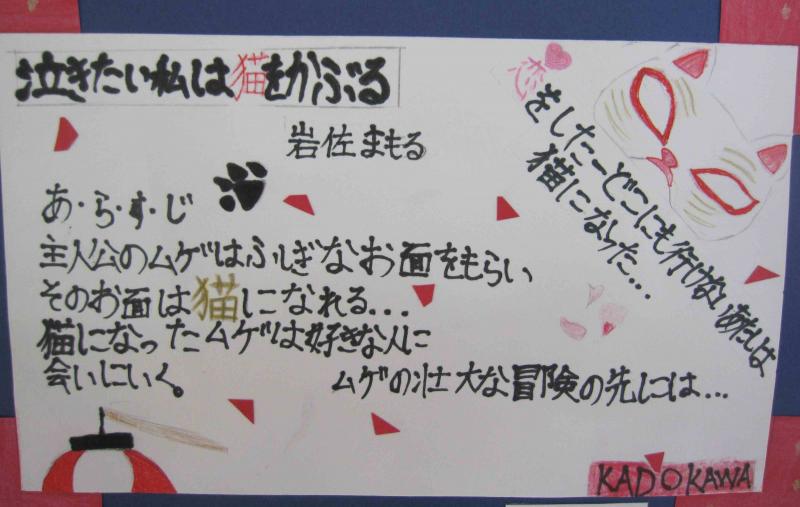 泣きたい私は猫をかぶる
岩佐まもる
恋をしたーどこにも行けないあたしは
猫になった...
あ・ら・す・じ
主人公のムゲはふしぎなお面をもらい
そのお面は猫になれる...
猫になったムゲは好きな人に
会いにいく。
ムゲの壮大な冒険の先には...
KADOKAWA